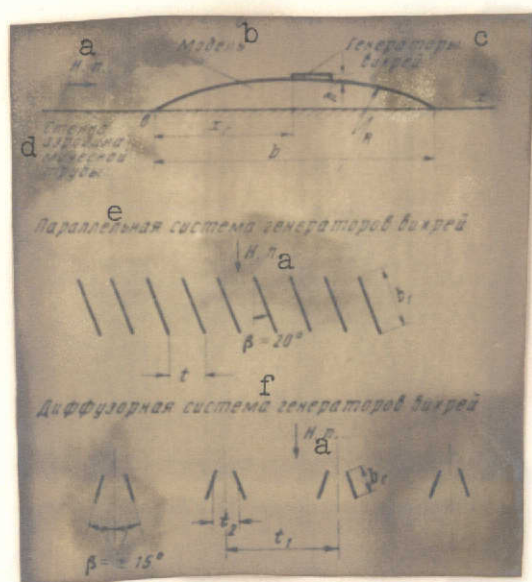 a
b
c
Модель
Генераторы вихрей
Н.п.
h
0
x
x₁
R
b
d
Стенка аэродинамической трубы
e
Параллельная система генераторов вихрей
Н.п.
a
b₁
β=20°
t
f
Диффузорная система генераторов вихрей
Н.п.
a
t₂
t₁
β = ± 15°